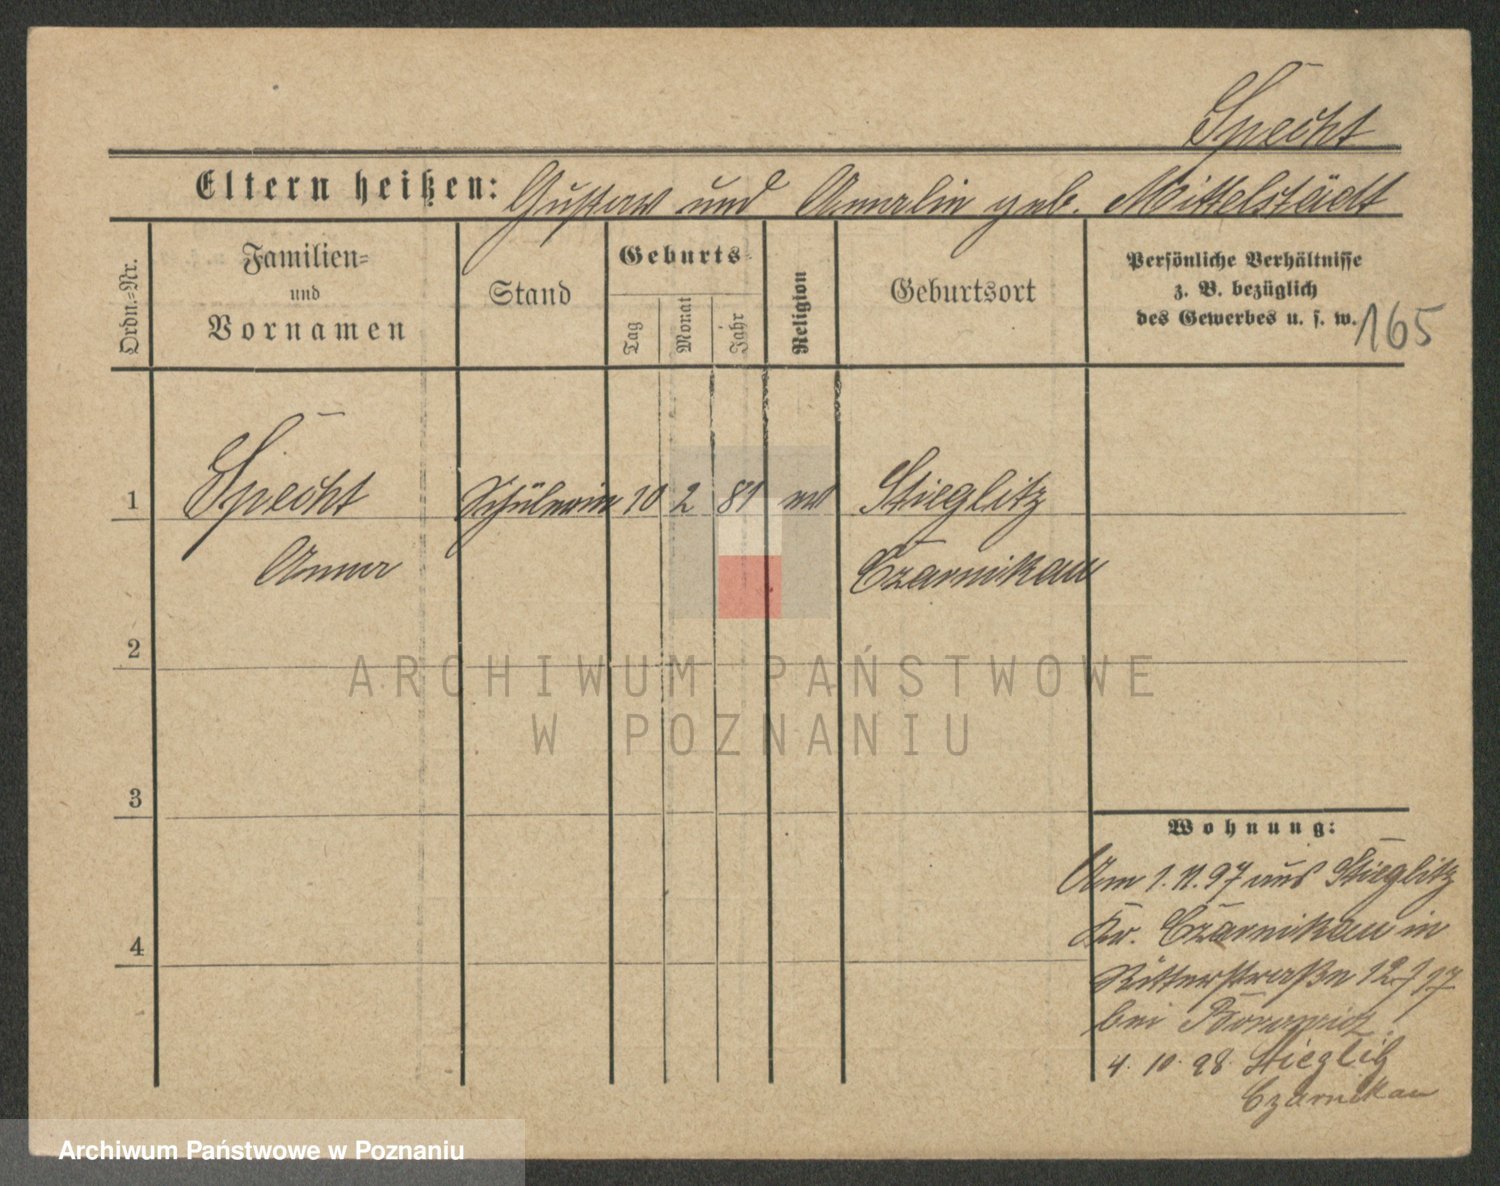 Specht
Eltern heißen: Gustav und Amalie geb. Mittelstädt
Ordn.-Nr.
Familien-
und
Vornamen
Stand
Geburts-
Tag
Monat
Jahr
Religion
Geburtsort
Persönliche Verhältnisse
z. B. bezüglich
des Gewerbes u. s. w.
165
1 Specht Schülerin 10 2 81 ev Stieglitz
Anna Czarnikau
2
3
4
Wohnung:
Am 1. 11. 97 aus Stieglitz
Kr. Czarnikau in
Ritterstraße 12
bei
4. 10. 98. Stieglitz
Czarnikau
ARCHIWUM PAŃSTWOWE
W POZNANIU
Archiwum Państwowe w Poznaniu